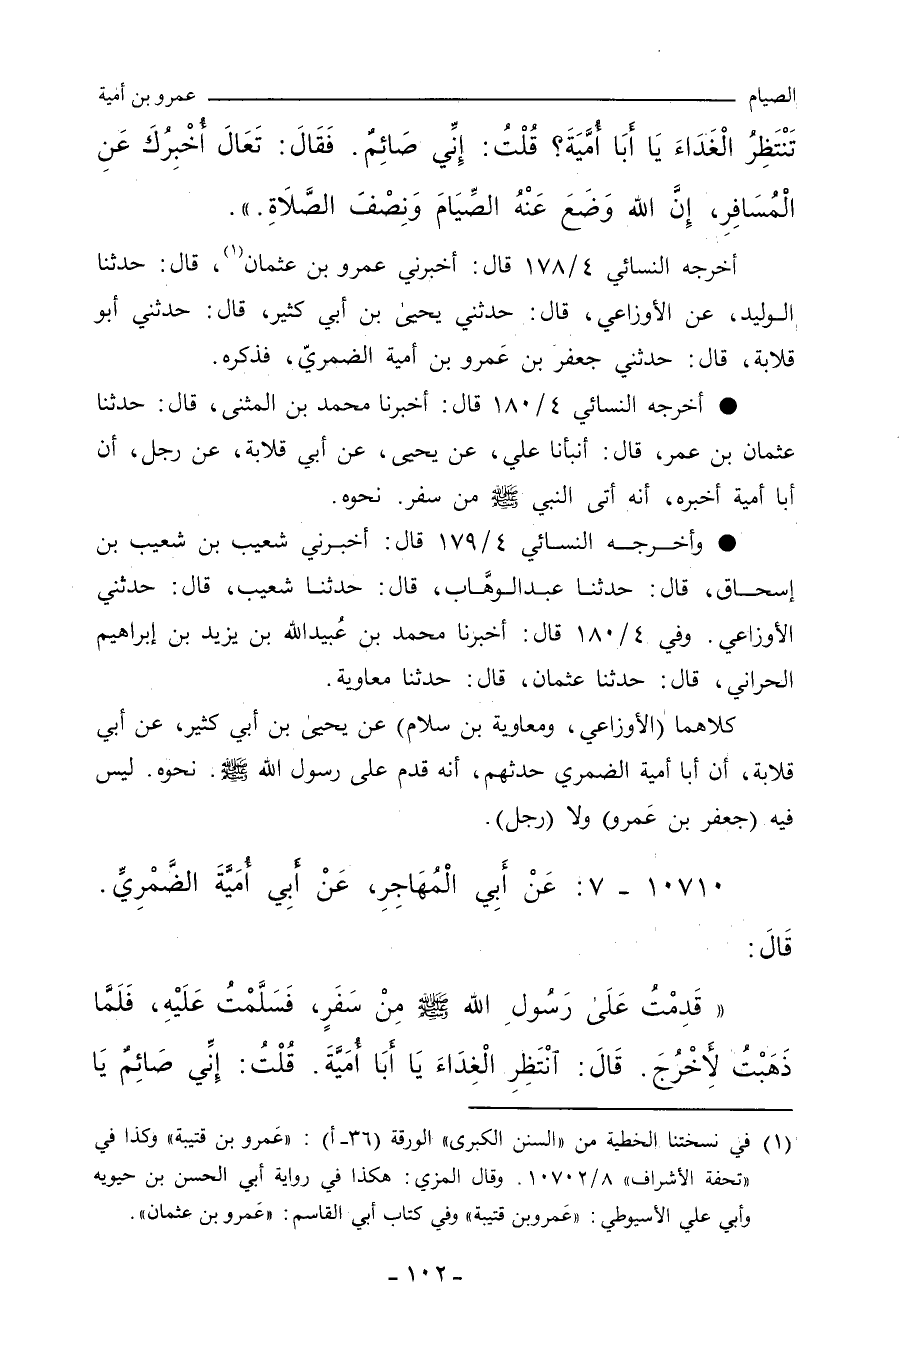 الصيام ـــــــــ عمرو بن أمية
تَنْتَظِرُ الْغَدَاءَ يَا أَبَا أُمَيَّةَ؟ قُلْتُ: إِنِّي صَائِمٌ. فَقَالَ: تَعَالَ أُخْبِرُكَ عَنِ
الْمُسَافِرِ، إِنَّ الله وَضَعَ عَنْهُ الصِّيَامَ وَنِصْفَ الصَّلَاةِ.».
أخرجه النسائي ١٧٨/٤ قال: أخبرني عمرو بن عثمان(١)، قال: حدثنا
الوليد، عن الأوزاعي، قال: حدثني يحيىٰ بن أبي كثير، قال: حدثني أبو
قلابة، قال: حدثني جعفر بن عَمرو بن أمية الضمريّ، فذكره.
● أخرجه النسائي ١٨٠/٤ قال: أخبرنا محمد بن المثنى، قال: حدثنا
عثمان بن عمر، قال: أنبأنا علي، عن يحيى، عن أبي قلابة، عن رجل، أن
أبا أمية أخبره، أنه أتى النبي ﷺ من سفر. نحوه.
● وأخرجه النسائي ١٧٩/٤ قال: أخبرني شعيب بن شعيب بن
إسحاق، قال: حدثنا عبدالوهَّاب، قال: حدثنا شعيب، قال: حدثني
الأوزاعي. وفي ١٨٠/٤ قال: أخبرنا محمد بن عُبيدالله بن يزيد بن إبراهيم
الحراني، قال: حدثنا عثمان، قال: حدثنا معاوية.
كلاهما (الأوزاعي، ومعاوية بن سلام) عن يحيىٰ بن أبي كثير، عن أبي
قلابة، أن أبا أمية الضمري حدثهم، أنه قدم على رسول الله ﷺ. نحوه. ليس
فيه (جعفر بن عَمرو) ولا (رجل).
١٠٧١٠ - ٧: عَنْ أَبِي الْمُهَاجِرِ، عَنْ أَبِي أُمَيَّةَ الضَّمْرِيِّ.
قَالَ:
« قَدِمْتُ عَلَىٰ رَسُولِ الله ﷺ مِنْ سَفَرٍ، فَسَلَّمْتُ عَلَيْهِ، فَلَمَّا
ذَهَبْتُ لِأَخْرُجَ. قَالَ: ٱنْتَظِرِ الْغِدَاءَ يَا أَبَا أُمَيَّةَ. قُلْتُ: إِنِّي صَائِمٌ يَا
(١) في نسختنا الخطية من «السنن الكبرى» الورقة (٣٦- أ) : «عَمرو بن قتيبة» وكذا في
«تحفة الأشراف» ١٠٧٠٢/٨. وقال المزي: هكذا في رواية أبي الحسن بن حيويه
وأبي علي الأسيوطي: «عَمروبن قتيبة» وفي كتاب أبي القاسم: «عَمرو بن عثمان».
- ١٠٢ -